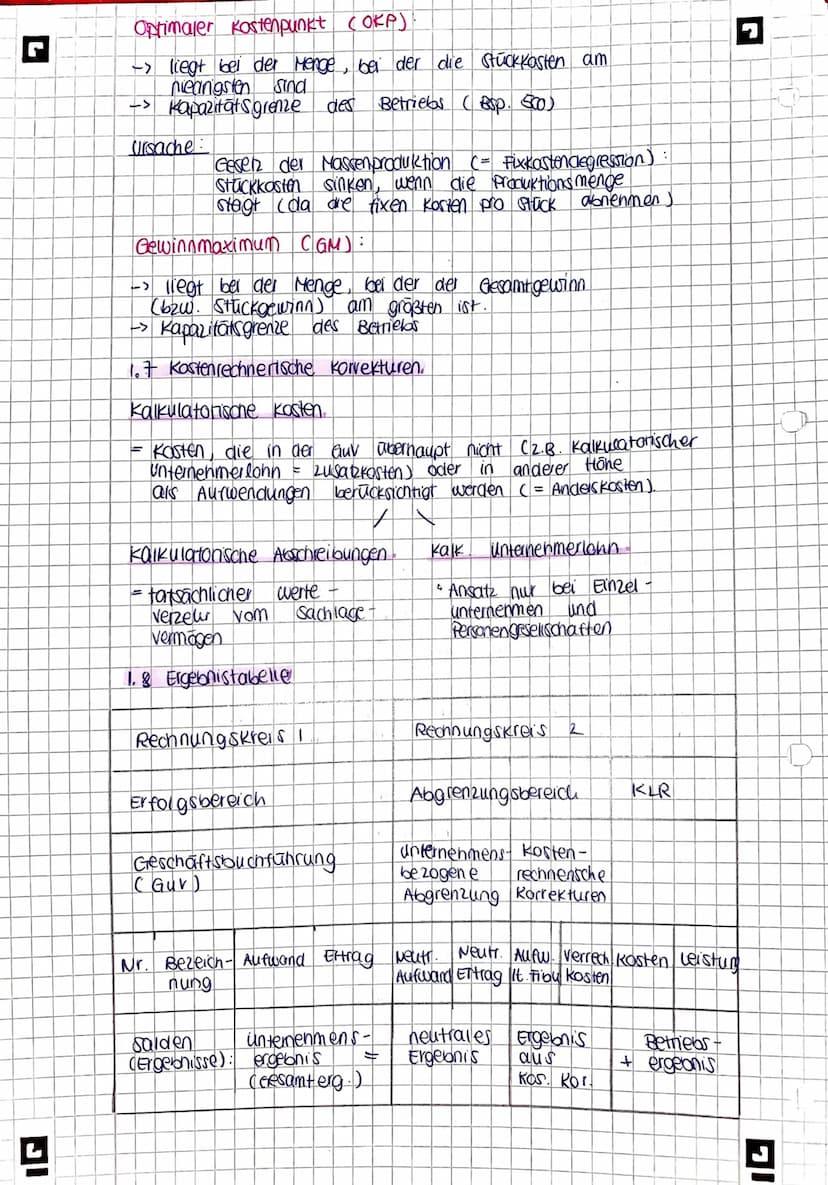 Optimaler Kostenpunkt (OKP):
-> liegt bei der Menge, bei der die Stückkosten am
niedrigsten sind
-> Kapazitätsgrenze des Betriebs (Bsp. 500)
Ursache:
Gesetz der Massenproduktion (= Fixkostendegression):
Stückkosten sinken, wenn die Produktionsmenge
steigt (da die fixen Kosten pro Stück abnehmen)
Gewinnmaximum (GM):
-> liegt bei der Menge, bei der der Gesamtgewinn
(bzw. Stückgewinn) am größten ist.
-> Kapazitätsgrenze des Betriebs
1.7 Kostenrechnerische Korrekturen.
Kalkulatorische Kosten.
= Kosten, die in der GuV überhaupt nicht (z.B. Kalkulatorischer
Unternehmerlohn = Zusatzkosten) oder in anderer Höhe
als Aufwendungen berücksichtigt werden (= Anderskosten).
Kalkulatorische Abschreibungen. Kalk. Unternehmerlohn.
= tatsächlicher Werte-
verzehr vom Sachlage-
vermögen
• Ansatz nur bei Einzel-
unternehmen und
Personengesellschaften
1.8 Ergebnistabelle
Rechnungskreis 1 Rechnungskreis 2
Erfolgsbereich Abgrenzungsbereich KLR
Geschäftsbuchführung
(GuV)
unternehmens-
bezogene
Abgrenzung
Kosten-
rechnerische
Korrekturen
Nr. Bezeich-
nung
Aufwand Ertrag
Neutr.
Aufwand
Neutr.
Ertrag
Aufw.
lt. Fibu
Verrech
Kosten
Kosten Leistung
Salden
(Ergebnisse):
Unternehmens-
ergebnis =
(Gesamterg.)
neutrales
Ergebnis
Ergebnis
aus
Kos. Kor.
Betriebs-
+ ergebnis